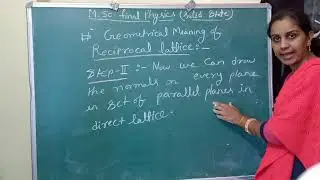 M.Sc final Physics (Solid State)
# Geometrical Meaning of
Reciprocal lattice:-
Step-II :- Now we can draw
the normals on every plane
in set of parallel planes in
direct lattice.